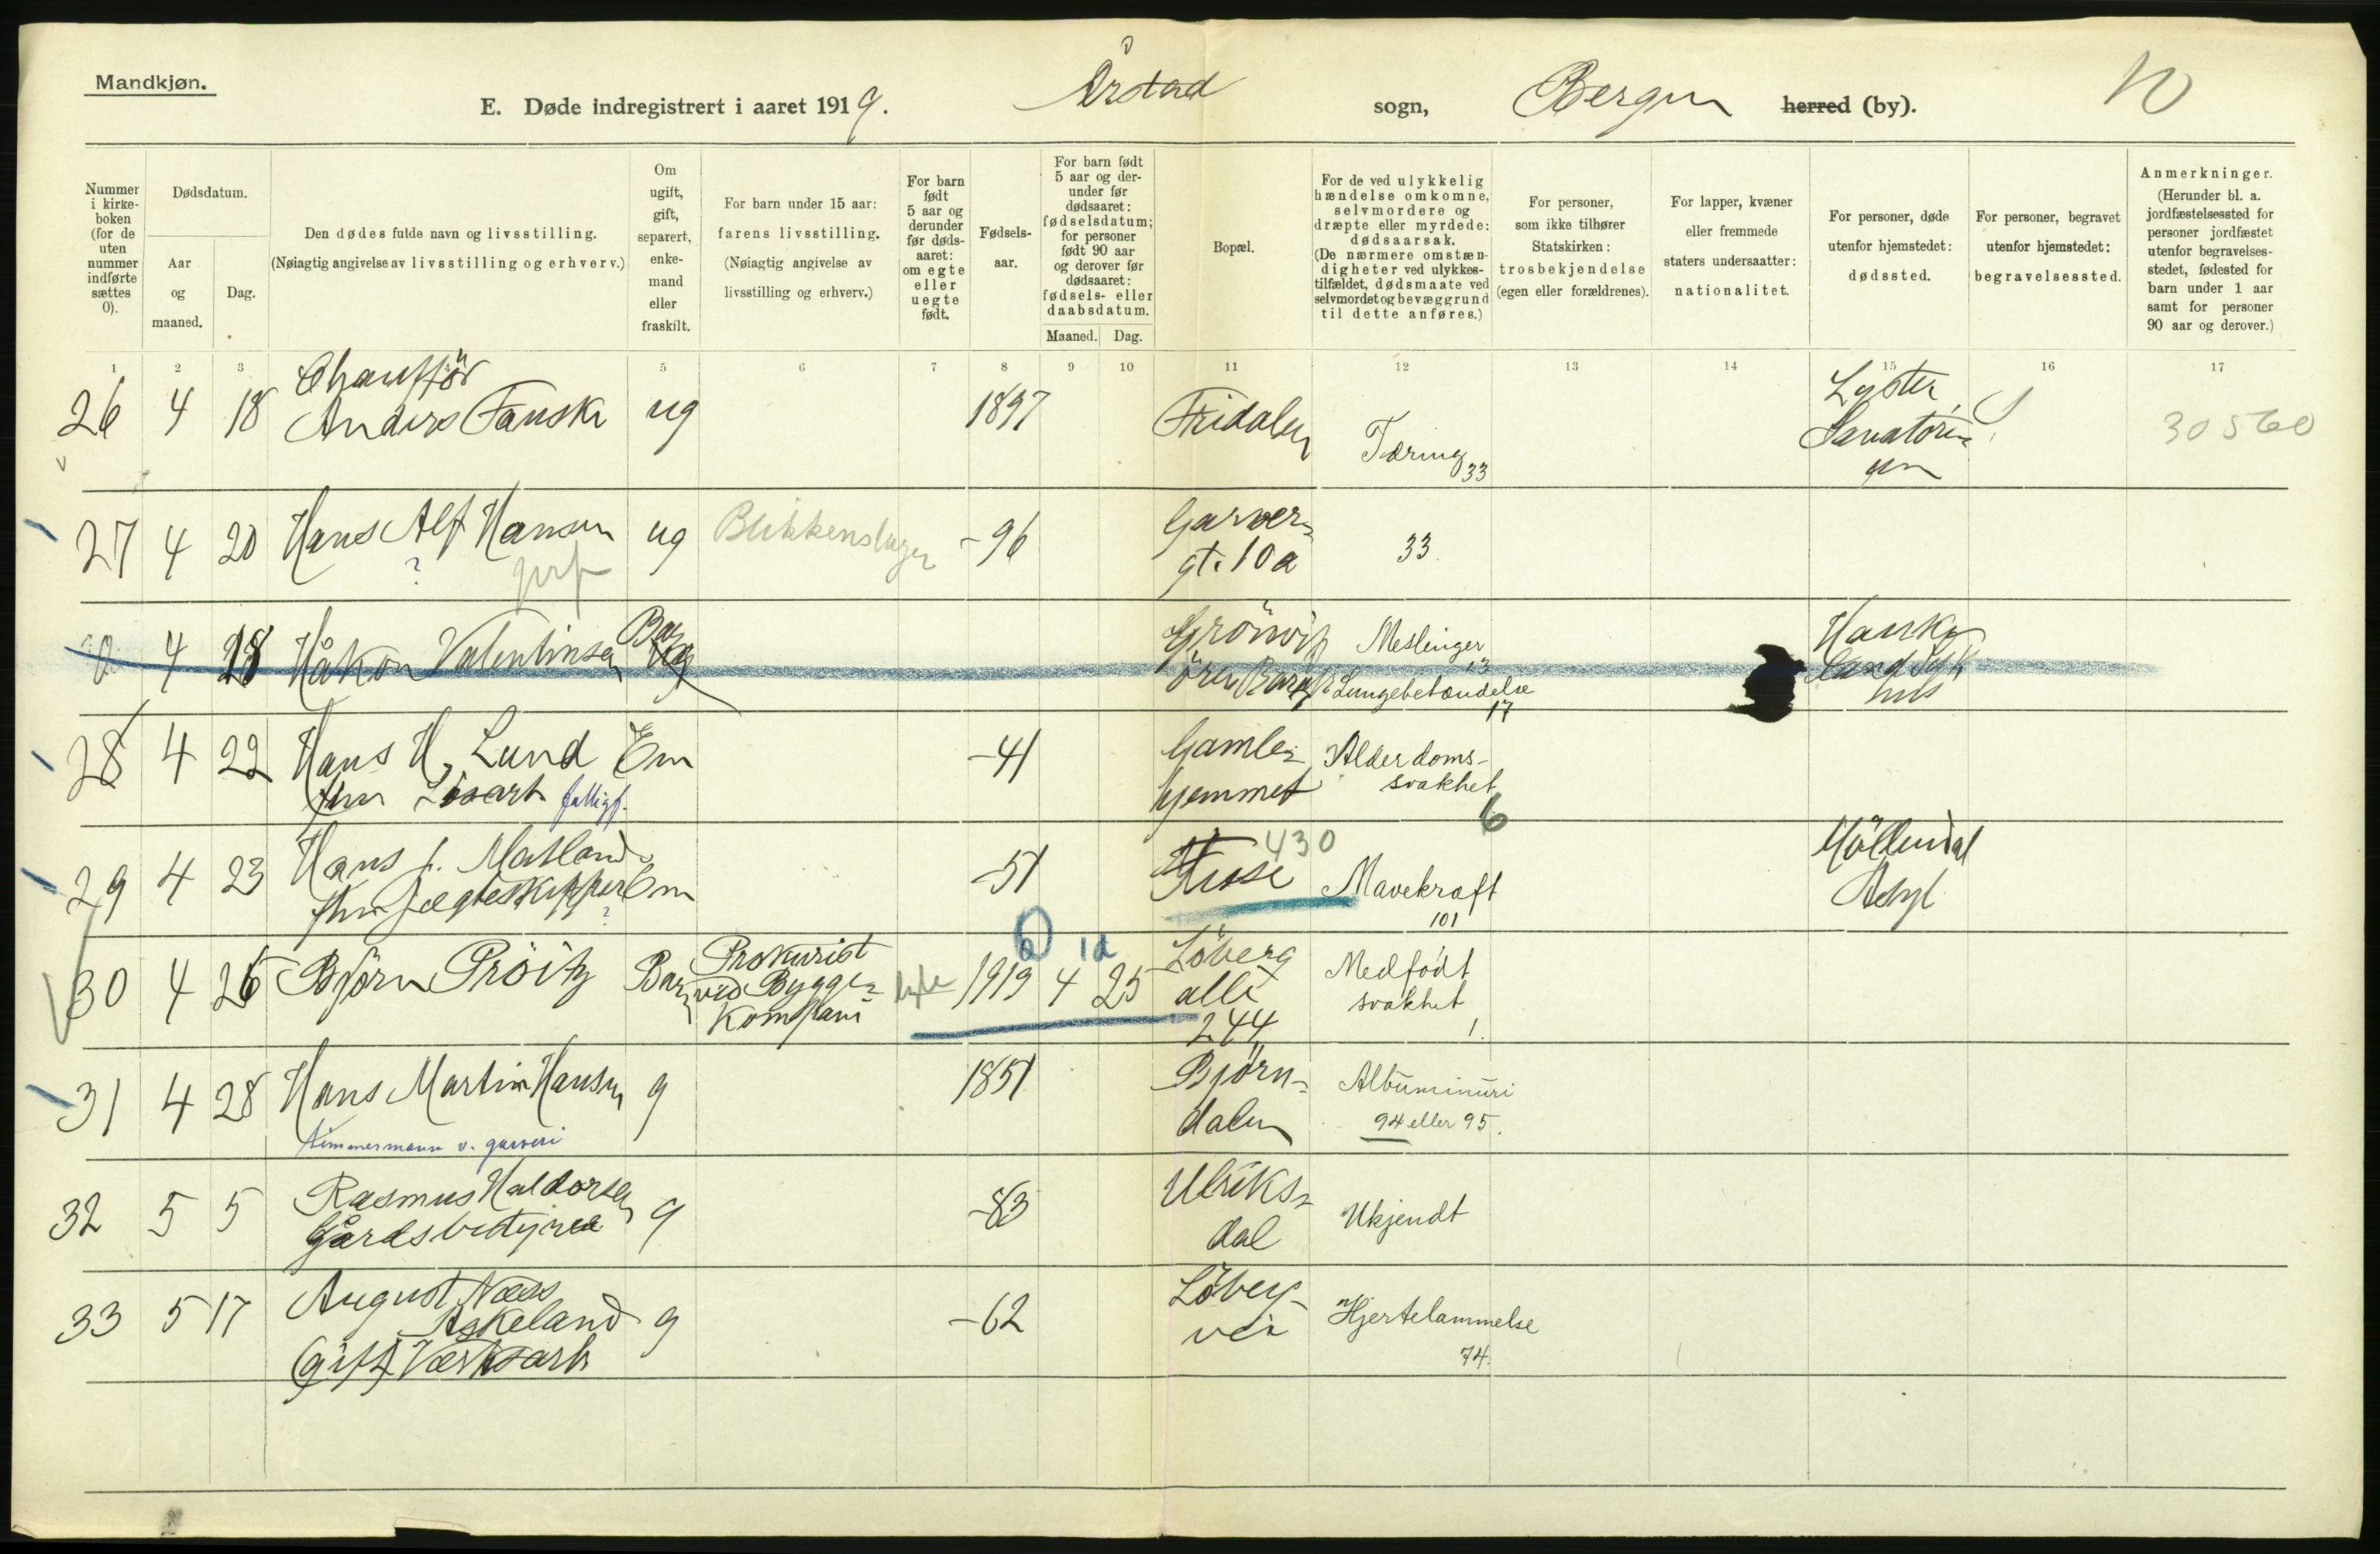 Mandkjøn.
E. Døde indregistrert i aaret 1919. Årstad sogn, Bergen herred (by). 10
Nummer i kirke-boken (for de uten nummer indførte sættes 0).
Dødsdatum.
Aar og maaned.
Dag.
Den dødes fulde navn og livsstilling.
(Nøiagtig angivelse av livsstilling og erhverv.)
Om ugift, gift, separert, enke-mand eller fraskilt.
For barn under 15 aar: farens livsstilling.
(Nøiagtig angivelse av livsstilling og erhverv.)
For barn født 5 aar og derunder før døds-aaret: om egte eller uegte født.
Fødsels-aar.
For barn født 5 aar og der-under før dødsaaret: fødselsdatum; for personer født 90 aar og derover før dødsaaret: fødsels- eller daabsdatum.
Maaned. Dag.
Bopæl.
For de ved ulykkelig hændelse omkomne, selvmordere og dræpte eller myrdede: dødsaarsak.
(De nærmere omstæn-digheter ved ulykkes-tilfældet, dødsmaate ved selvmordet og bevæggrund til dette anføres.)
For personer, som ikke tilhører Statskirken: trosbekjendelse (egen eller forældrenes).
For lapper, kvæner eller fremmede staters undersaatter: nationalitet.
For personer, døde utenfor hjemstedet: dødssted.
For personer, begravet utenfor hjemstedet: begravelsessted.
Anmerkninger.
(Herunder bl. a. jordfæstelsessted for personer jordfæstet utenfor begravelses-stedet, fødested for barn under 1 aar samt for personer 90 aar og derover.)
1 2 3 5 6 7 8 9 10 11 12 13 14 15 16 17
Chaufför
26 4 18 Anders Fauske ug 1897 Fridalen Tæring 33 Lyster Sanatori= um 30560
27 4 20 Hans Alf Hansen ug Blikkenslager -96 Garver= gt. 10a 33
?
0 4 18 Håkon Valentinsen Barn Meslinger 13 Hauke= land Syk hus
Lungebetændelse 17
28 4 22 Hans H. Lund Em -41 Gamle= hjemmet Alderdoms- svakhet 6
fhv Løsarb fattigf.
29 4 23 Hans J. Matland Em -51 430 Mavekræft 101 Möllendal Asyl
fhv Jægteskipper ?
30 4 26 Björn Pröitz Barn Prokurist ved Bygge= Kompani 1919 4 25 1d Löberg alle 244 Medfödt svakhet 1.
31 4 28 Hans Martin Hansen g 1851 Björn= dalen Albuminuri
94 eller 95.
timmermann v. garveri
32 5 5 Rasmus Haldorsen g -83 Ulriks= dal Ukjendt
Gårdsbestyrer
33 5 17 August Næss Askeland g -62 Löberg- vei Hjertelammelse 74.
(gift) Værksarb